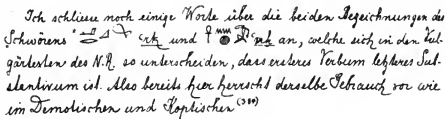 Ich schliesse noch einige Worte über die beiden Bezeichnungen des
Schwörens ꜥrḳ und ꜥnḫ an, welche sich in den Vul-
gärtexten des N.R. so unterscheiden, dass ersteres Verbum letzteres Sub-
stantivum ist. Also bereits hier herrscht derselbe Gebrauch vor wie
im Demotischen und Koptischen (380)